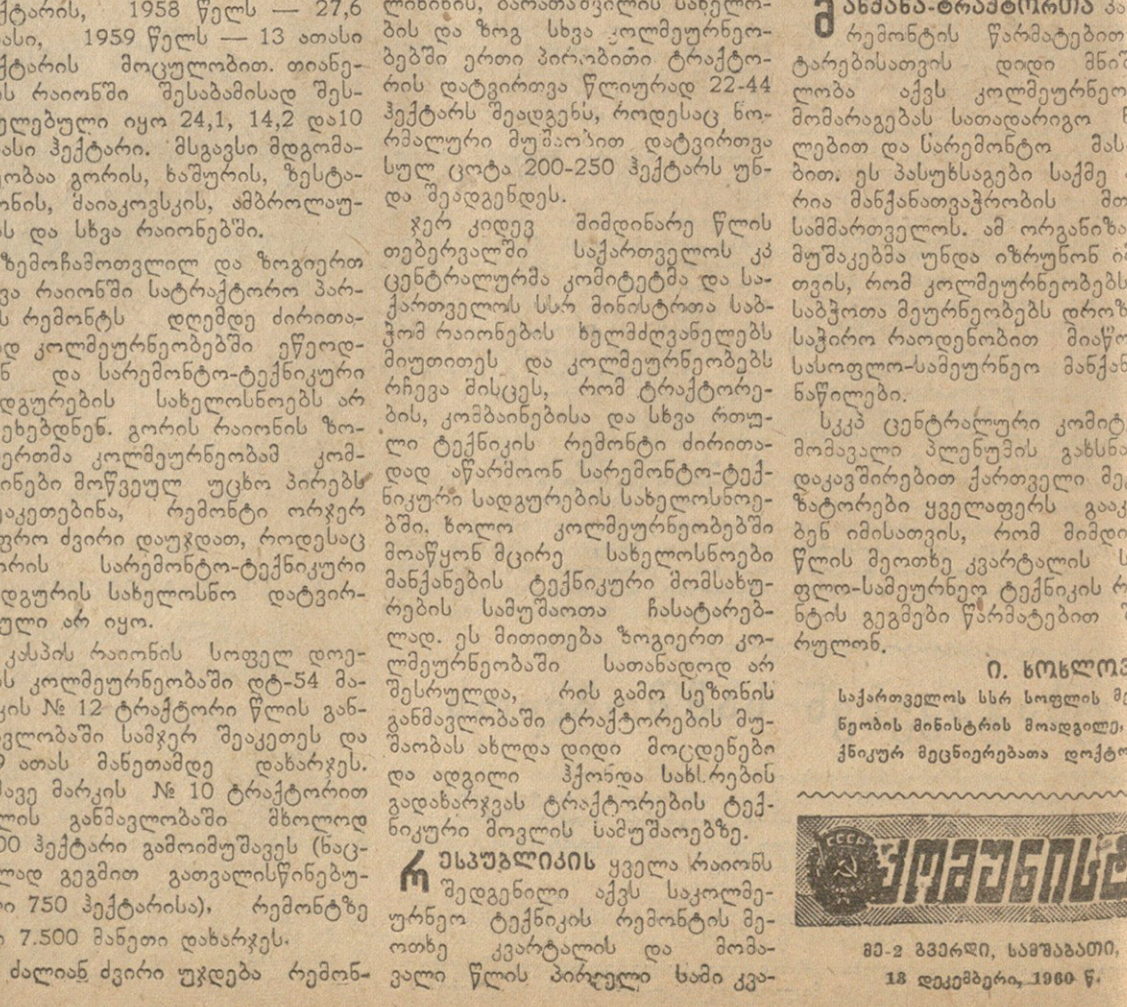 ქტარის, 1958 წელს — 27,6
ასი, 1959 წელს — 13 ათასი
ქტარის მოცულობით. თიანე-
ს რაიონში შესაბამისად შეს-
ელებული იყო 24,1, 14,2 და10
ასი ჰექტარი. მსგავსი მდგომა-
ეობაა გორის, ხაშურის, ზესტა-
ონის, მაიაკოვსკის, ამბროლაუ-
ს და სხვა რაიონებში.
ზემოჩამოთვლილ და ზოგიერთ
ვა რაიონში სატრაქტორო პარ-
ს რემონტს დღემდე ძირითა-
დ კოლმეურნეობებში ეწეოდ-
ნ და სარემონტო-ტექნიკური
დგურების სახელოსნოებს არ
ეხებდნენ. გორის რაიონის ზო-
ერთმა კოლმეურნეობამ კომ-
ინები მოწვეულ უცხო პირებს
აკეთებინა, რემონტი ორჯერ
ფრო ძვირი დაუჯდათ, როდესაც
რის სარემონტო-ტექნიკური
დგურის სახელოსნო დატვირ-
ული არ იყო.
კასპის რაიონის სოფელ დოე-
ს კოლმეურნეობაში დტ-54 მა-
კის № 12 ტრაქტორი წლის გან-
ვლობაში სამჯერ შეაკეთეს და
9 ათას მანეთამდე დახარჯეს.
ავე მარკის № 10 ტრაქტორით
ლის განმავლობაში მხოლოდ
00 ჰექტარი გამოიმუშავეს (ნაც-
ლად გეგმით გათვალისწინებუ-
ი 750 ჰექტარისა), რემონტზე
7.500 მანეთი დახარჯეს.
ძალიან ძვირი უჯდება რემონ-
ბის და ზოგ სხვა კოლმეურნეო-
ბებში ერთი პირობითი ტრაქტო-
რის დატვირთვა წლიურად 22-44
ჰექტარს შეადგენს, როდესაც ნო-
რმალური მუშაობით დატვირთვა
სულ ცოტა 200-250 ჰექტარს უნ-
და შეადგენდეს.
ჯერ კიდევ მიმდინარე წლის
თებერვალში საქართველოს კპ
ცენტრალურმა კომიტეტმა და სა-
ქართველოს სსრ მინისტრთა საბ-
ჭომ რაიონების ხელმძღვანელებს
მიუთითეს და კოლმეურნეობებს
რჩევა მისცეს, რომ ტრაქტორე-
ბის, კომბაინებისა და სხვა რთუ-
ლი ტექნიკის რემონტი ძირითა-
დად აწარმოონ სარემონტო-ტექ-
ნიკური სადგურების სახელოსნოე-
ბში. ხოლო კოლმეურნეობებში
მოაწყონ მცირე სახელოსნოები
მანქანების ტექნიკური მომსახუ-
რების სამუშაოთა ჩასატარებ-
ლად. ეს მითითება ზოგიერთ კო-
ლმეურნეობაში სათანადოდ არ
შესრულდა, რის გამო სეზონის
განმავლობაში ტრაქტორების მუ-
შაობას ახლდა დიდი მოცდენები
და ადგილი ჰქონდა სახსრების
გადახარჯვას ტრაქტორების ტექ-
ნიკური მოვლის სამუშაოებზე.
რესპუბლიკის ყველა რაიონს
შედგენილი აქვს საკოლმე-
ურნეო ტექნიკის რემონტის მე-
ოთხე კვარტალის და მომა-
ვალი წლის პირველი სამი კვა-
მანქანა-ტრაქტორთა
რემონტის წარმატებით
ტარებისათვის დიდი მნიშ
ლობა აქვს კოლმეურნეო
მომარაგებას სათადარიგო
ლებით და სარემონტო მას
ბით. ეს პასუხსაგები საქმე
რია მანქანათვაჭრობის მთ
სამმართველოს. ამ ორგანიზა
მუშაკებმა უნდა იზრუნონ
თვის, რომ კოლმეურნეობებს
საბჭოთა მეურნეობებს დროზ
საჭირო რაოდენობით მიაწო
სასოფლო-სამეურნეო მანქან
ნაწილები.
სკკპ ცენტრალური კომიტ
მომავალი პლენუმის გახსნა
დაკავშირებით ქართველი მე
ზატორები ყველაფერს გააკ
ბენ იმისათვის, რომ მიმდი
წლის მეოთხე კვარტალის ს
ფლო-სამეურნეო ტექნიკის რ
ნტის გეგმები წარმატებით
რულონ.
ი. ხოხლოვ
საქართველოს სსრ სოფლის მე
ნეობის მინისტრის მოადგილე,
ქნიკურ მეცნიერებათა დოქტო
СССР
კომუნისტ
მე-2 გვერდი, სამშაბათი,
13 დეკემბერი, 1960 წ.